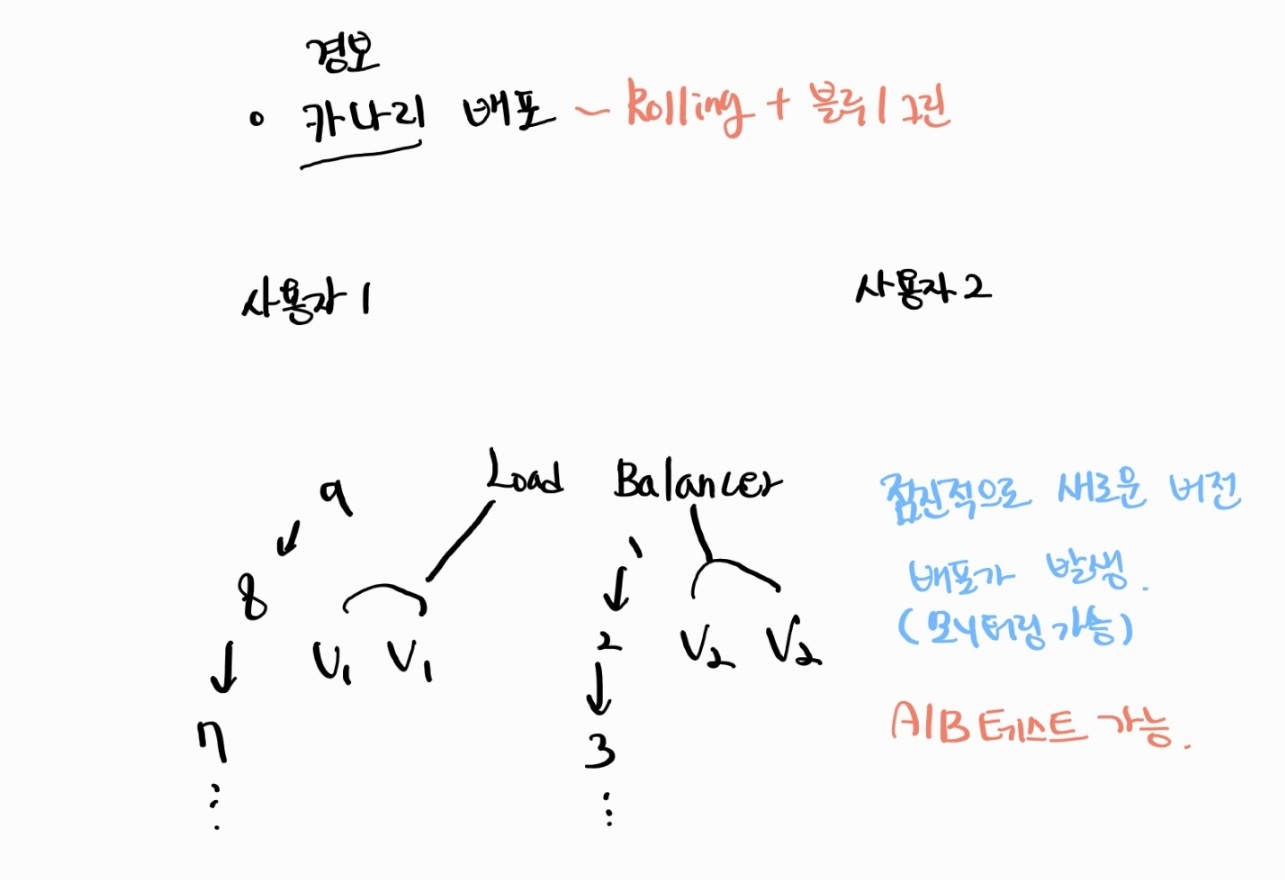 경보
• 카나리 배포 ~ Rolling + 블루/그린
사용자 1
사용자 2
Load Balancer
9
8
7
⋮
V1 V1
1
2
3
⋮
V2 V2
점진적으로 새로운 버전
배포가 발생.
(모니터링 가능)
A/B 테스트 가능.